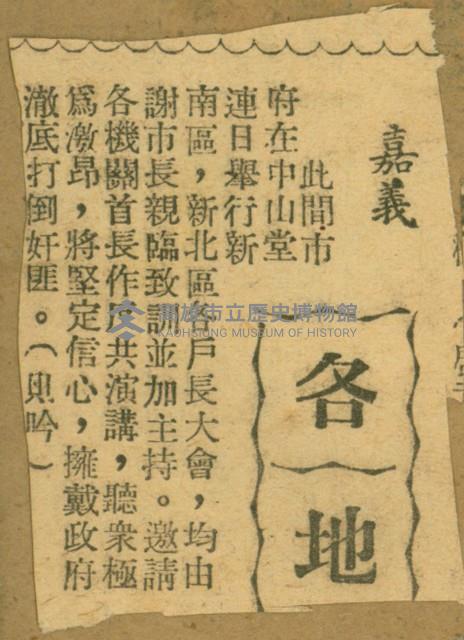 嘉義
此間市
府在中山堂
連日舉行新
南區，新北區戶長大會，均由
謝市長親臨致訓並加主持。邀請
各機關首長作反共演講，聽衆極
爲激昂，將堅定信心，擁戴政府
澈底打倒奸匪。（吟）
各地
高雄市立歷史博物館
KAOHSIUNG MUSEUM OF HISTORY